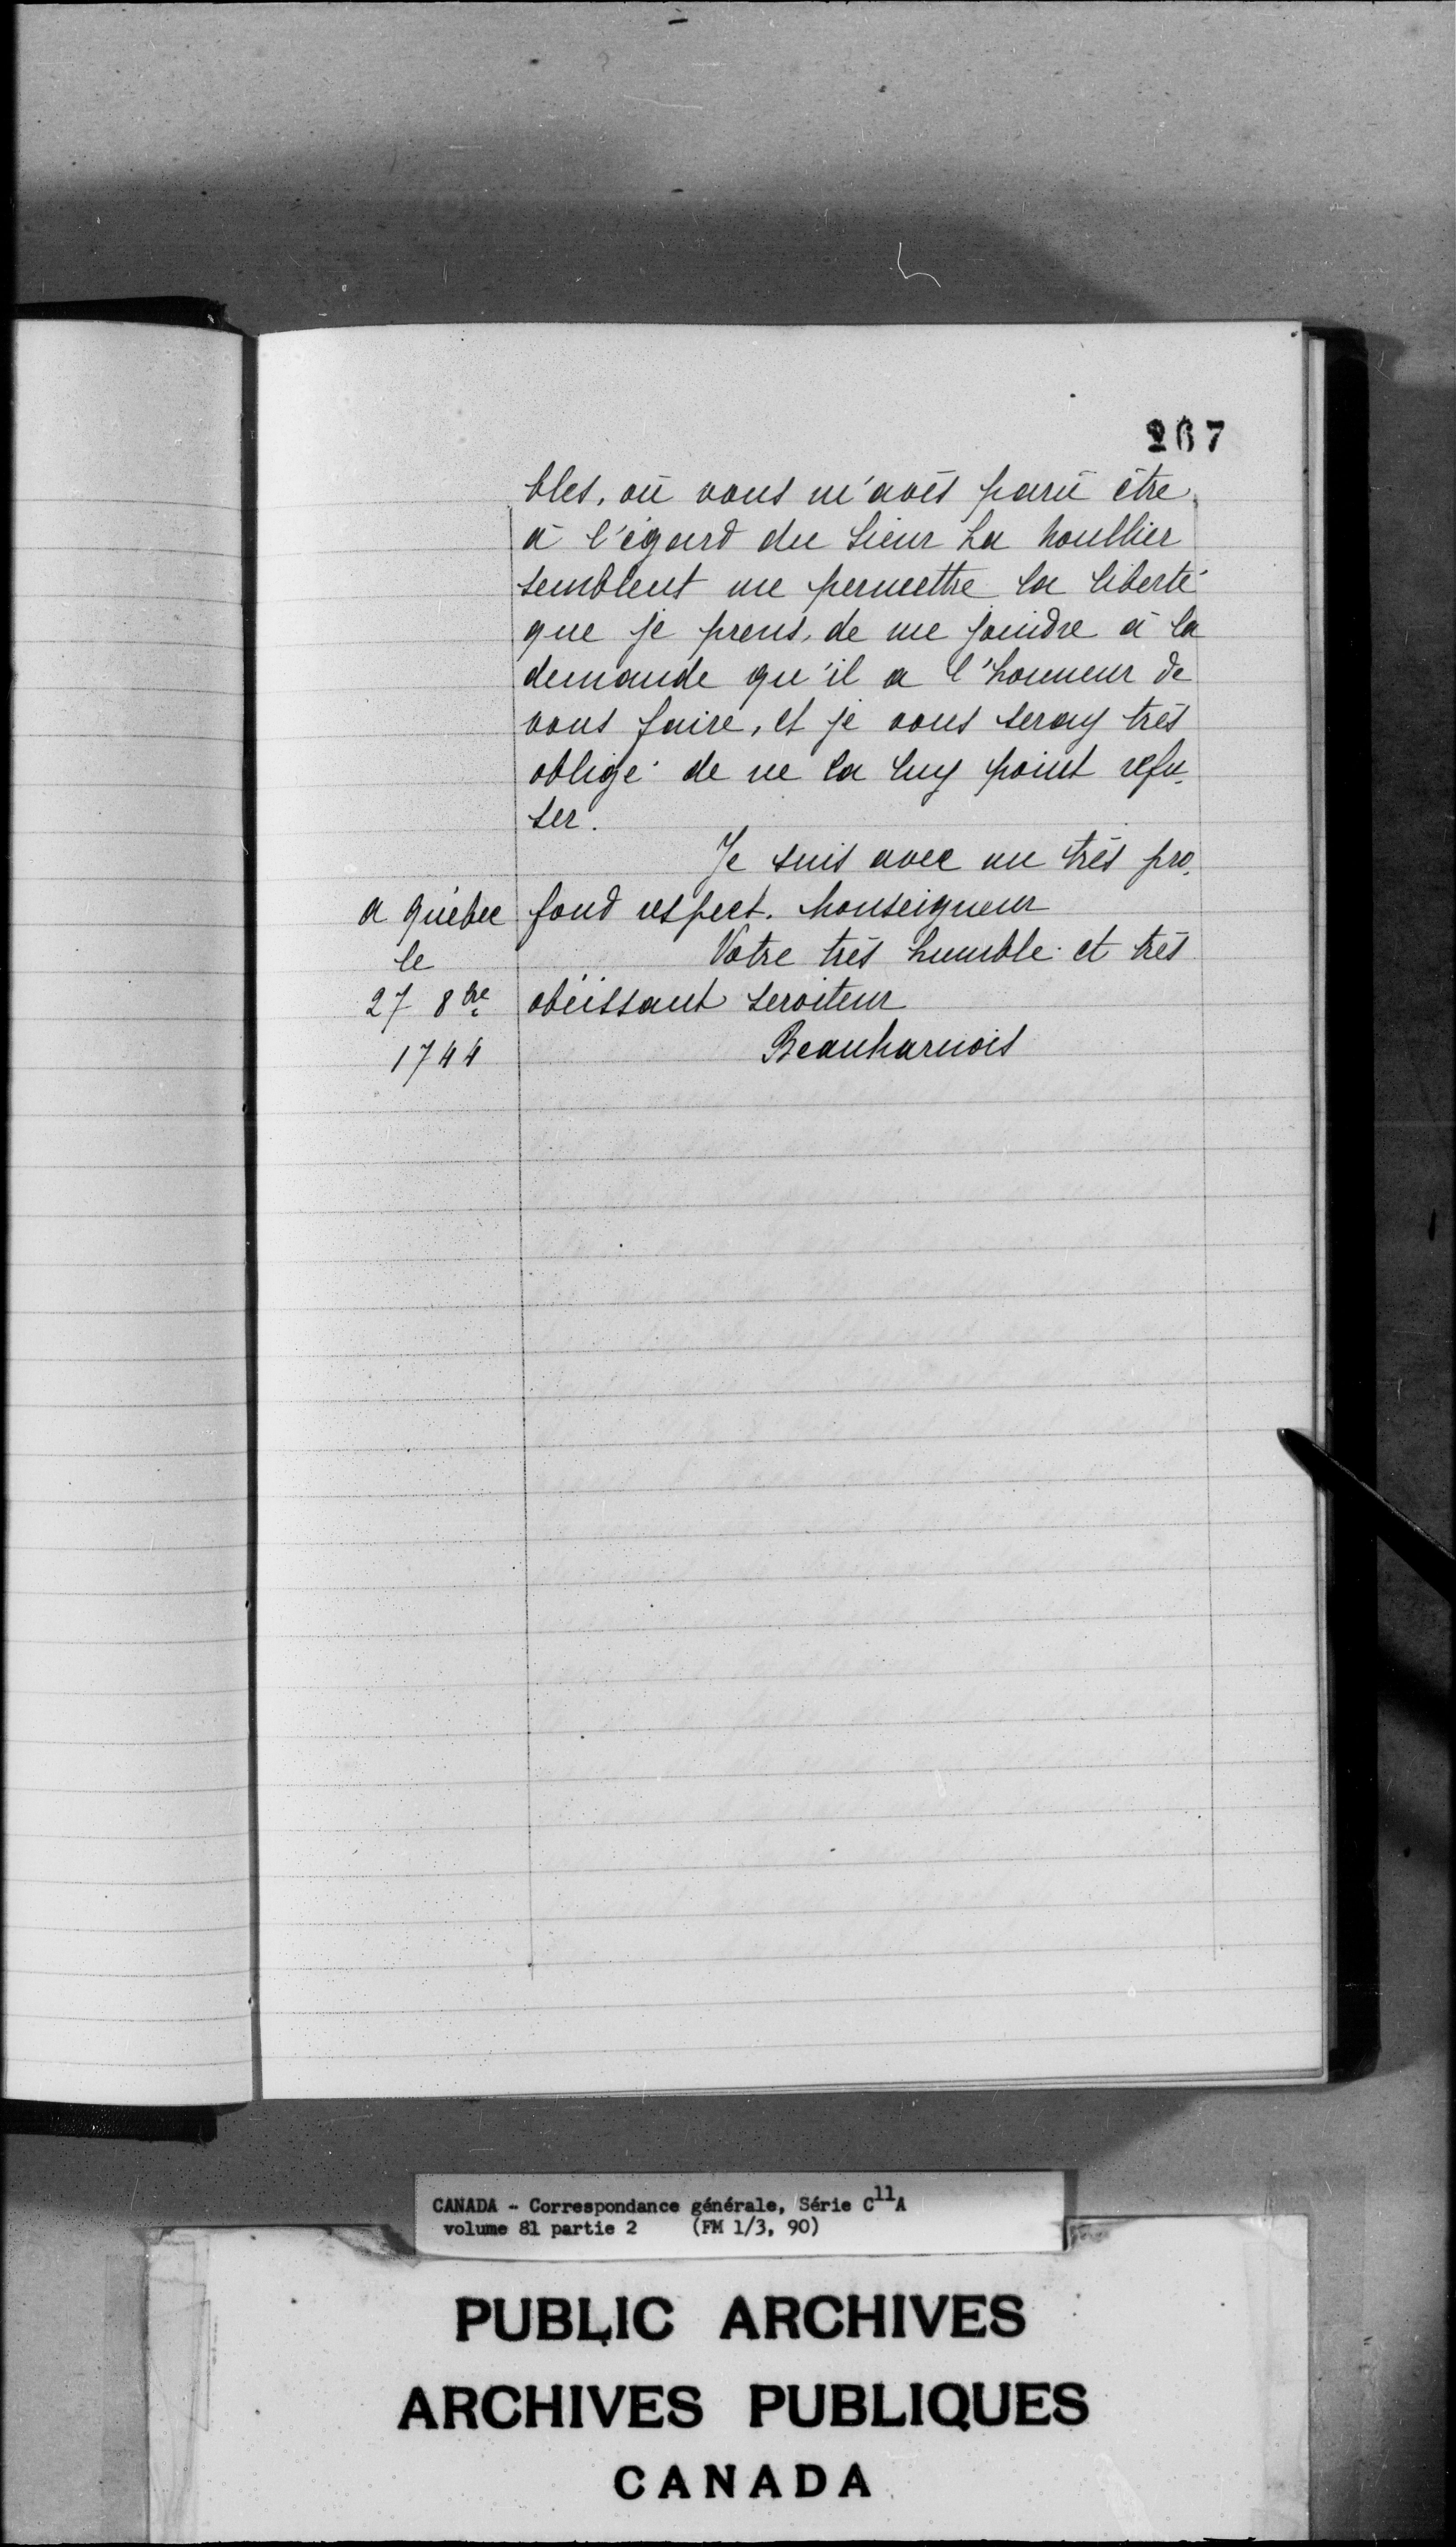 267
bles, où vous m'avés parû être
à l'égard du Sieur La houllier
semblent me permettre la liberté
que je prens, de me joindre à la
demande qu'il a l'honneur de
vous faire, et je vous seray très
obligé de ne la luy point refu-
ser.
Je suis avec un très pro-
a québec fond respect. Monseigneur
le Votre très humble et très
27 8bre obéissant serviteur
1744 Beauharnois
CANADA - Correspondance générale, Série C11A
volume 81 partie 2 (FM 1/3, 90)
PUBLIC ARCHIVES
ARCHIVES PUBLIQUES
CANADA